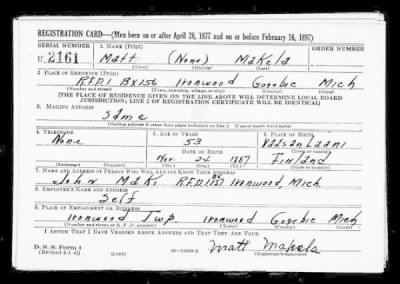 REGISTRATION CARD—(Men born on or after April 28, 1877 and on or before February 16, 1897)
SERIAL NUMBER 1. NAME (Print) ORDER NUMBER
U 2161 Matt (None) Makela
(First) (Middle) (Last)
2. PLACE OF RESIDENCE (Print)
R.F.D.1 Bx156 Ironwood Gogebic Mich
(Number and street) (Town, township, village, or city) (County) (State)
[THE PLACE OF RESIDENCE GIVEN ON THE LINE ABOVE WILL DETERMINE LOCAL BOARD
JURISDICTION; LINE 2 OF REGISTRATION CERTIFICATE WILL BE IDENTICAL]
3. MAILING ADDRESS
Same
[Mailing address if other than place indicated on line 2. If same insert word same]
4. TELEPHONE 5. AGE IN YEARS 6. PLACE OF BIRTH
None 53
DATE OF BIRTH (Town or county)
Nov. 24 1887 Finland
(Exchange) (Number) (Mo.) (Day) (Yr.) (State or country)
7. NAME AND ADDRESS OF PERSON WHO WILL ALWAYS KNOW YOUR ADDRESS
John Maki R.F.D.1 Bx Ironwood Mich.
8. EMPLOYER'S NAME AND ADDRESS
Self
9. PLACE OF EMPLOYMENT OR BUSINESS
Ironwood Twp Ironwood Gogebic Mich
(Number and street or R. F. D. number) (Town) (County) (State)
I AFFIRM THAT I HAVE VERIFIED ABOVE ANSWERS AND THAT THEY ARE TRUE.
D. S. S. Form 1
(Revised 4-1-42) (over) Matt Makela
(Registrant's signature)